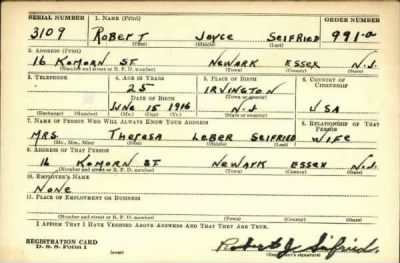 SERIAL NUMBER 1. NAME (Print) ORDER NUMBER
3109 ROBERT JOYCE SEIFRIED 991-a
(First) (Middle) (Last)
2. ADDRESS (Print)
16 KOMORN ST NEWARK ESSEX N.J.
(Number and street or R. F. D. number) (Town) (County) (State)
3. TELEPHONE 4. AGE IN YEARS 5. PLACE OF BIRTH 6. COUNTRY OF CITIZENSHIP
25 IRVINGTON
DATE OF BIRTH (Town or county)
JUNE 15 1916 N.J. USA
(Exchange) (Number) (Mo.) (Day) (Yr.) (State or country)
7. NAME OF PERSON WHO WILL ALWAYS KNOW YOUR ADDRESS 8. RELATIONSHIP OF THAT PERSON
MRS. THERESA LEBER SEIFRIED WIFE
(Mr., Mrs., Miss) (First) (Middle) (Last)
9. ADDRESS OF THAT PERSON
16 KOMORN ST NEWARK ESSEX N.J.
(Number and street or R. F. D. number) (Town) (County) (State)
10. EMPLOYER'S NAME
NONE
11. PLACE OF EMPLOYMENT OR BUSINESS
(Number and street or R. F. D. number) (Town) (County) (State)
I AFFIRM THAT I HAVE VERIFIED ABOVE ANSWERS AND THAT THEY ARE TRUE.
REGISTRATION CARD
D. S. S. Form 1 (over) Robert J Seifried
(Registrant's signature)